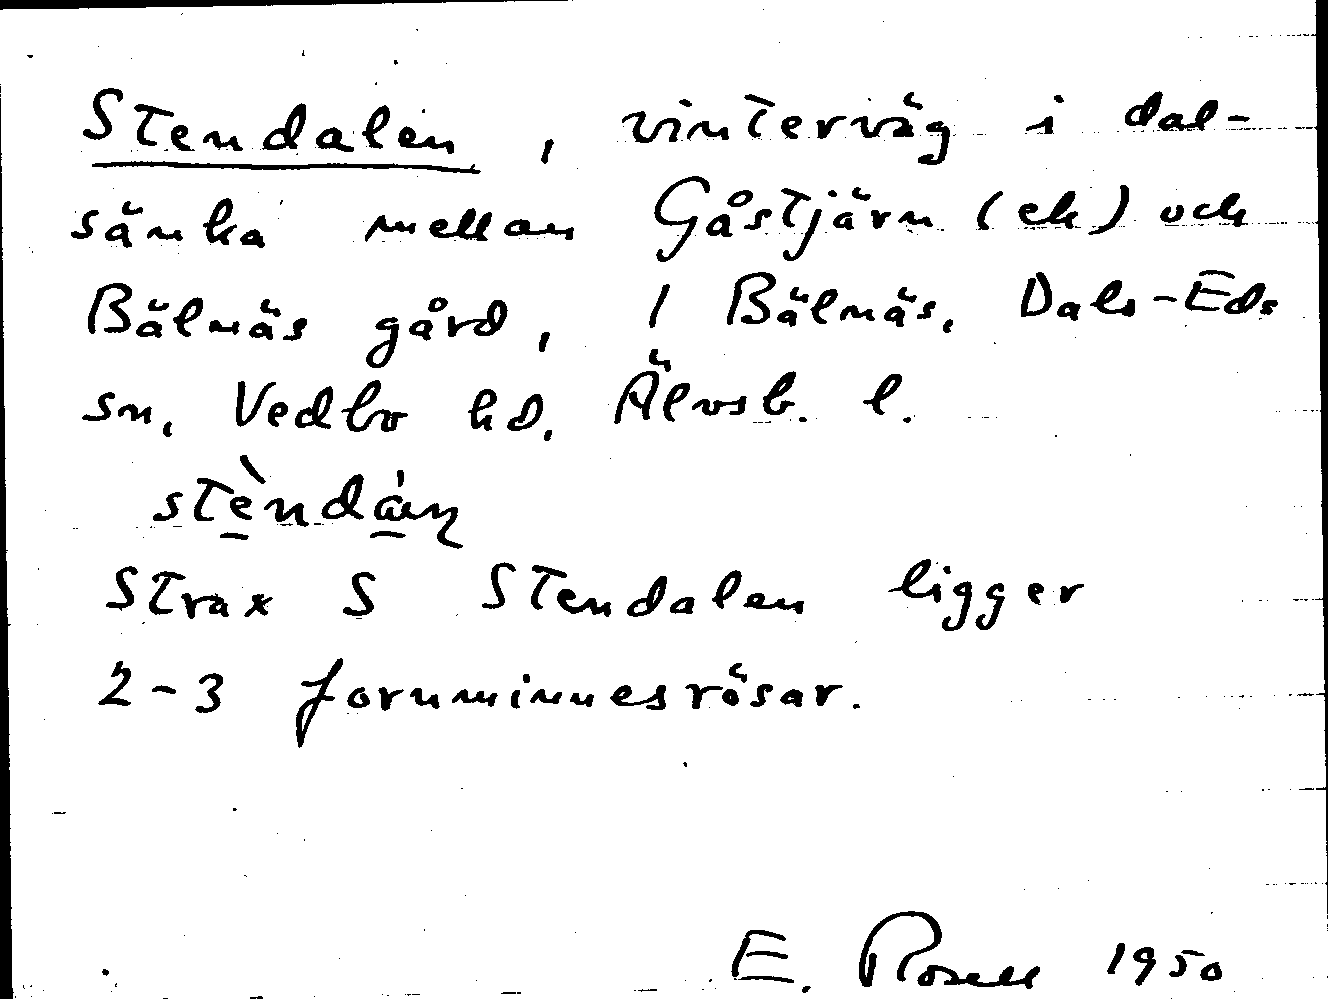 Stendalen, vinterväg i dal-
sänka mellan Gåstjärn (ek) och
Bälnäs gård, 1 Bälnäs, Dals-Eds
sn, Vedbo hd, Älvsb. l.
stèndáṇ
Strax S Stendalen ligger
2-3 fornminnesrösar.
E. Rosell 1950